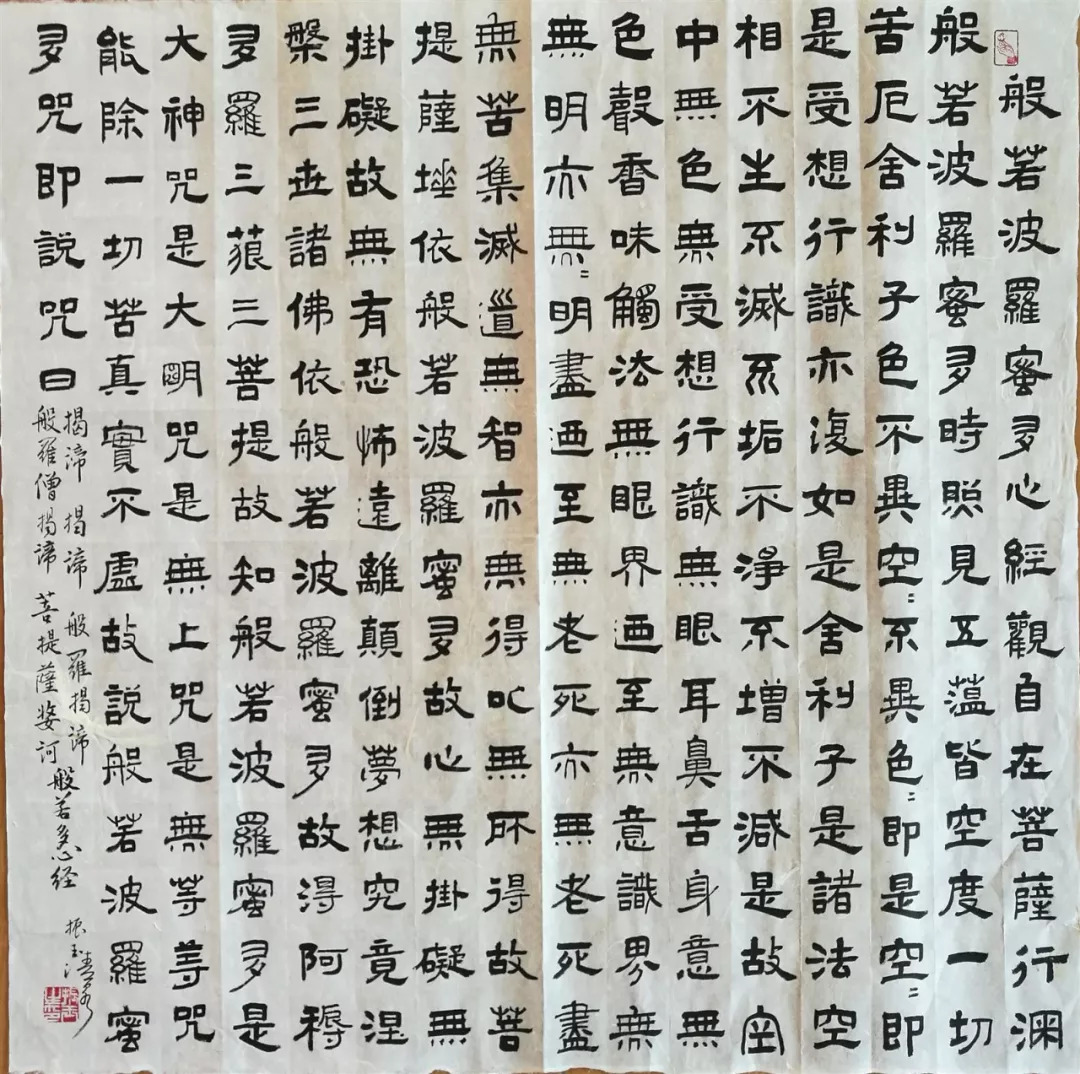 般若波羅蜜多心經觀自在菩薩行深
般若波羅蜜多時照見五薀皆空度一切
苦厄舍利子色不異空=不異色=即是空=即
是受想行識亦復如是舍利子是諸法空
相不生不滅不垢不淨不增不減是故空
中無色無受想行識無眼耳鼻舌身意無
色聲香味觸法無眼界迺至無意識界無
無明亦無=明盡迺至無老死亦無老死盡
無苦集滅道無智亦無得以無所得故菩
提薩埵依般若波羅蜜多故心無掛礙無
掛礙故無有恐怖遠離顛倒夢想究竟涅
槃三世諸佛依般若波羅蜜多故得阿耨
多羅三藐三菩提故知般若波羅蜜多是
大神咒是大明咒是無上咒是無等等咒
能除一切苦真實不虛故説般若波羅蜜
多咒即説咒曰
揭諦 揭諦 般羅揭諦
般羅僧揭諦 菩提薩婆訶 般若多心经
振玉